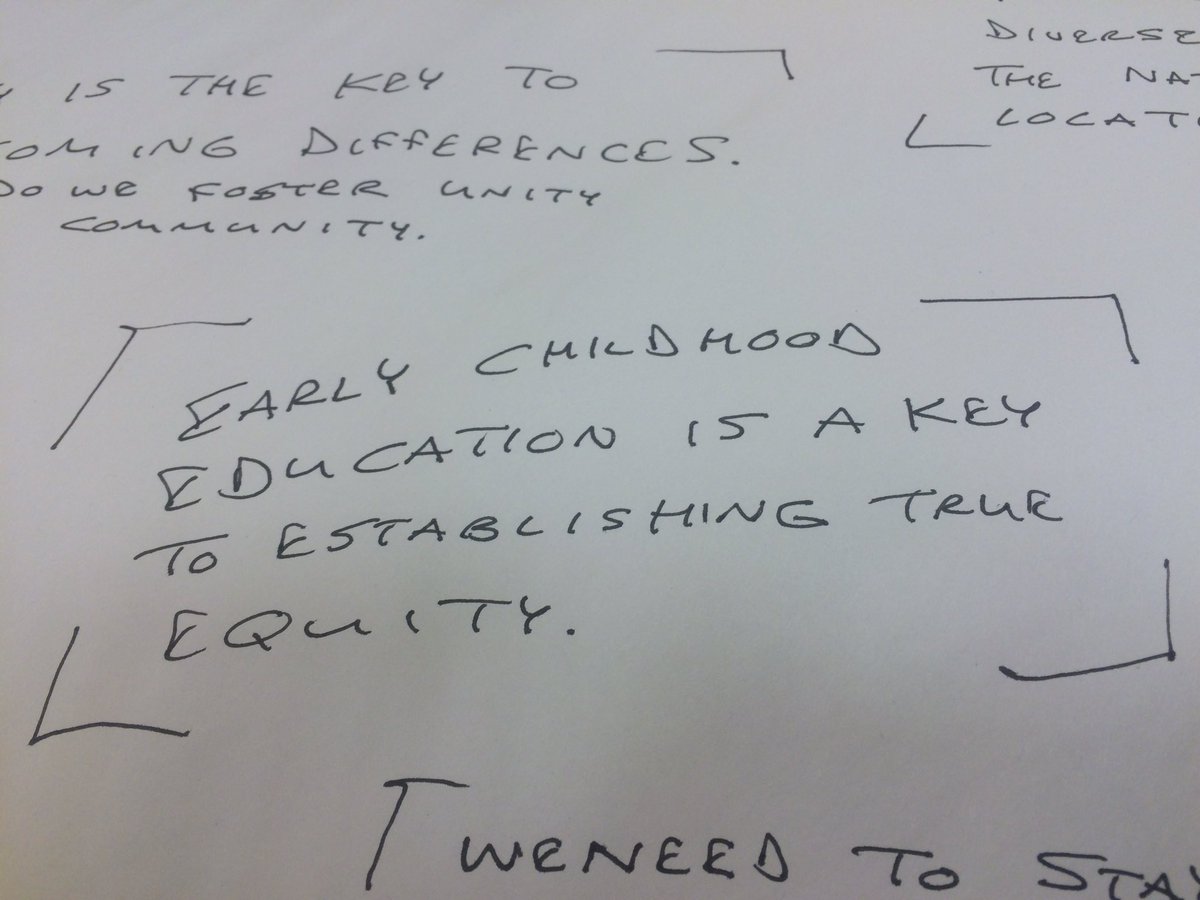 IS THE KEY TO
DIFFERENCES.
DO WE FOSTER UNITY
COMMUNITY.
DIVERSE
THE
EARLY CHILDHOOD
EDUCATION IS A KEY
TO ESTABLISHING TRUE
EQUITY.
WE NEED TO STAY